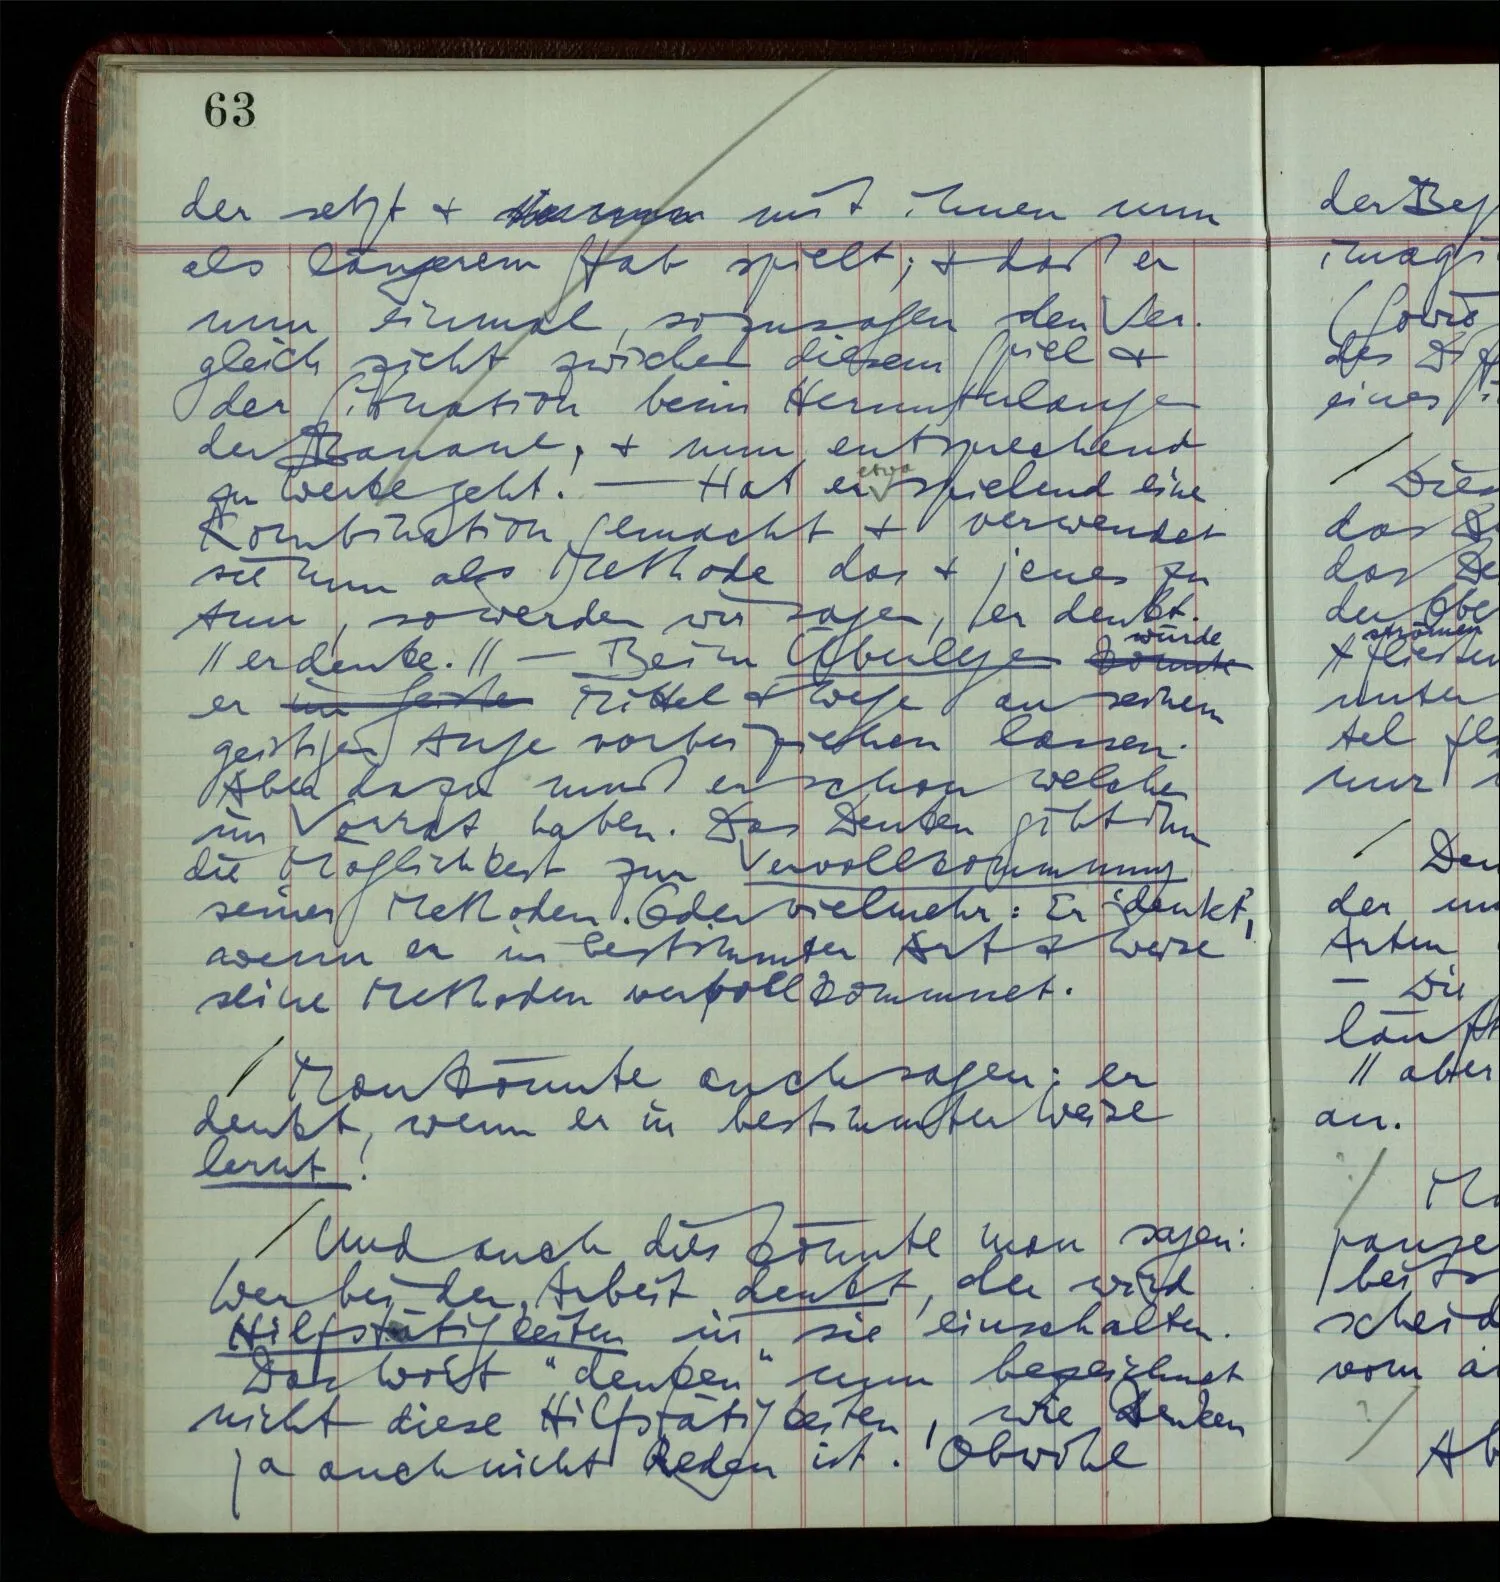 63
der setzt + mit ihnen nun
als längerem Stab spielt; + daß er
nun einmal, sozusagen den Ver-
gleich zieht zwischen diesem Spiel +
der Situation beim Herunterlangen
der Banane, + nun entsprechend
zu Werke geht. — Hat er etwa spielend eine
Kombination gemacht + verwendet
sie nun als Methode das + jenes zu
tun, so werden wir sagen, er denkt.
// er denke. // — Beim Überlegen könnte würde
er im Geiste Mittel + Wege an seinem
geistigen Auge vorbeiziehen lassen.
Aber dazu muß er schon welche
im Vorrat haben. Das Denken gibt ihm
die Möglichkeit zur Vervollkommnung
seiner Methoden. Oder vielmehr: Er 'denkt',
wenn er in bestimmter Art + Weise
seine Methoden vervollkommnet.
/ Man könnte auch sagen: er
denkt, wenn er in bestimmter Weise
lernt!
/ Und auch dies könnte man sagen:
Wer bei der Arbeit denkt, der wird
Hilfstätigkeiten in sie einschalten.
Das Wort "denken" nun bezeichnet
nicht diese Hilfstätigkeiten, wie Denken
ja auch nicht Reden ist. Obwohl
der
(
des
eines
/
das
das
der
strömen
+
unter
tel
nur
/
der
Arten
— Die
// aber
an.
/
scheid
vom
/